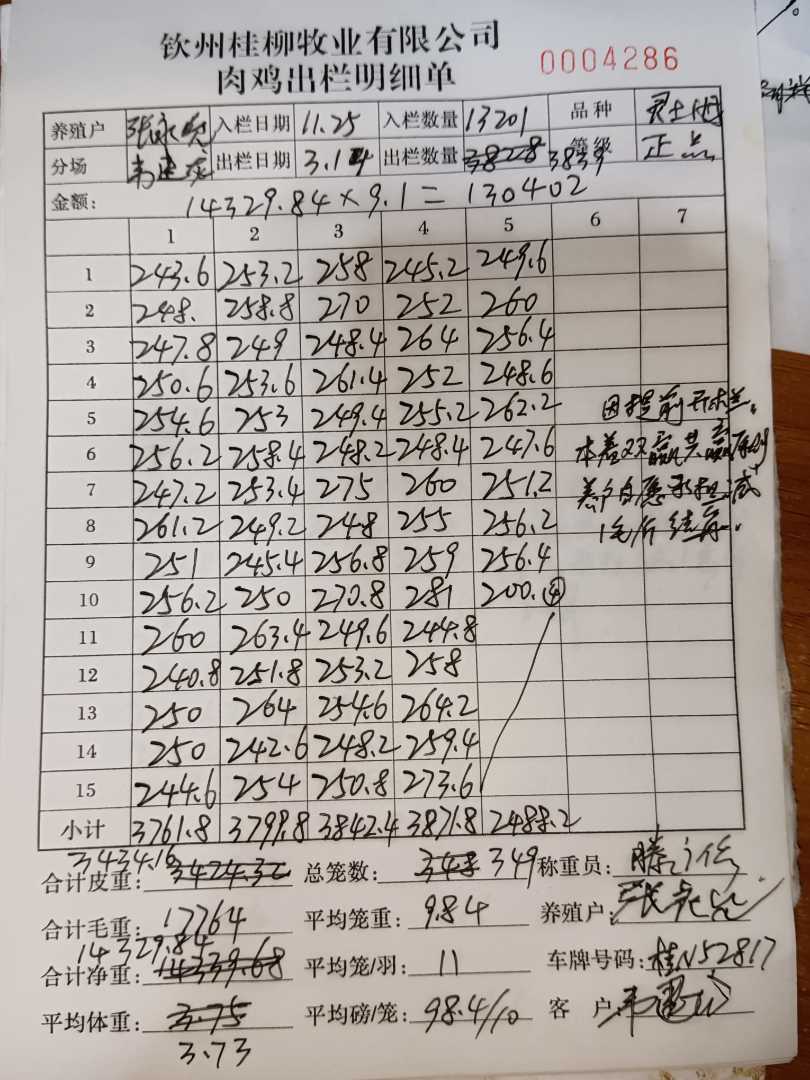 钦州桂柳牧业有限公司
肉鸡出栏明细单
0004286
养殖户 入栏日期 11.25 入栏数量 13201 品种
分场 出栏日期 3.14 出栏数量 3828 3839 等级 正品
金额: 14329.84×9.1=130402
1 2 3 4 5 6 7
1 243.6 253.2 258 245.2 249.6
2 248. 258.8 270 252 260
3 247.8 249 248.4 264 256.4
4 250.6 253.6 261.4 252 248.6
5 254.6 253 249.4 255.2 262.2
6 256.2 258.4 248.2 248.4 247.6
7 247.2 253.4 275 260 251.2
8 261.2 249.2 248 255 256.2
9 251 245.4 256.8 259 256.4
10 256.2 250 270.8 281 200.④
11 260 263.4 249.6 244.8
12 240.8 251.8 253.2 258
13 250 264 254.6 264.2
14 250 242.6 248.2 259.4
15 244.6 254 250.8 273.6
小计 3761.8 3799.8 3842.4 3871.8 2488.2
因提前开栏,
本着双赢共赢原则
养户自愿承担减
1毛/斤结算.
3434.16
合计皮重: 3424.32 总笼数: 348 349 称重员:
合计毛重: 17764 平均笼重: 9.84 养殖户:
14329.84
合计净重: 14339.68 平均笼/羽: 11 车牌号码: 桂N52817
平均体重: 3.75 平均磅/笼: 98.4/10 客 户:
3.73